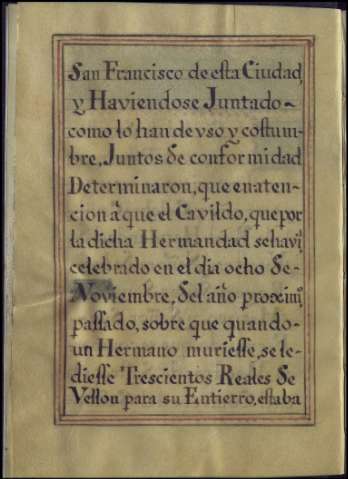 San Francisco de esta Ciudad,
y Haviendose Juntado~
como lo han de vso y costum-
bre, Juntos de conformidad
Determinaron, que en aten-
cion â que el Cavildo, que por
la dicha Hermandad se havi
celebrado en el dia ocho de-
Noviembre, del año proximº
passado, sobre que quando-
un Hermano muriesse, se le-
diesse Trescientos Reales de
Vellon para su Entierro, estaba